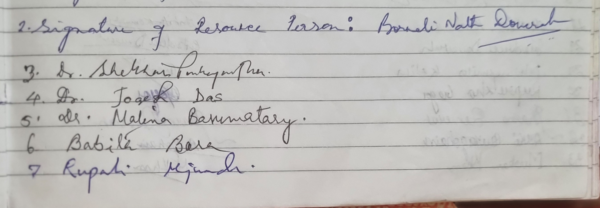 2. Signature of Resource Person: Bonali Nath Dowerah
3. Dr. Shekhar
4. Dr. Joseh Das
5. Dr. Malina Basumatary.
6 Babita Bora
7 Rupali